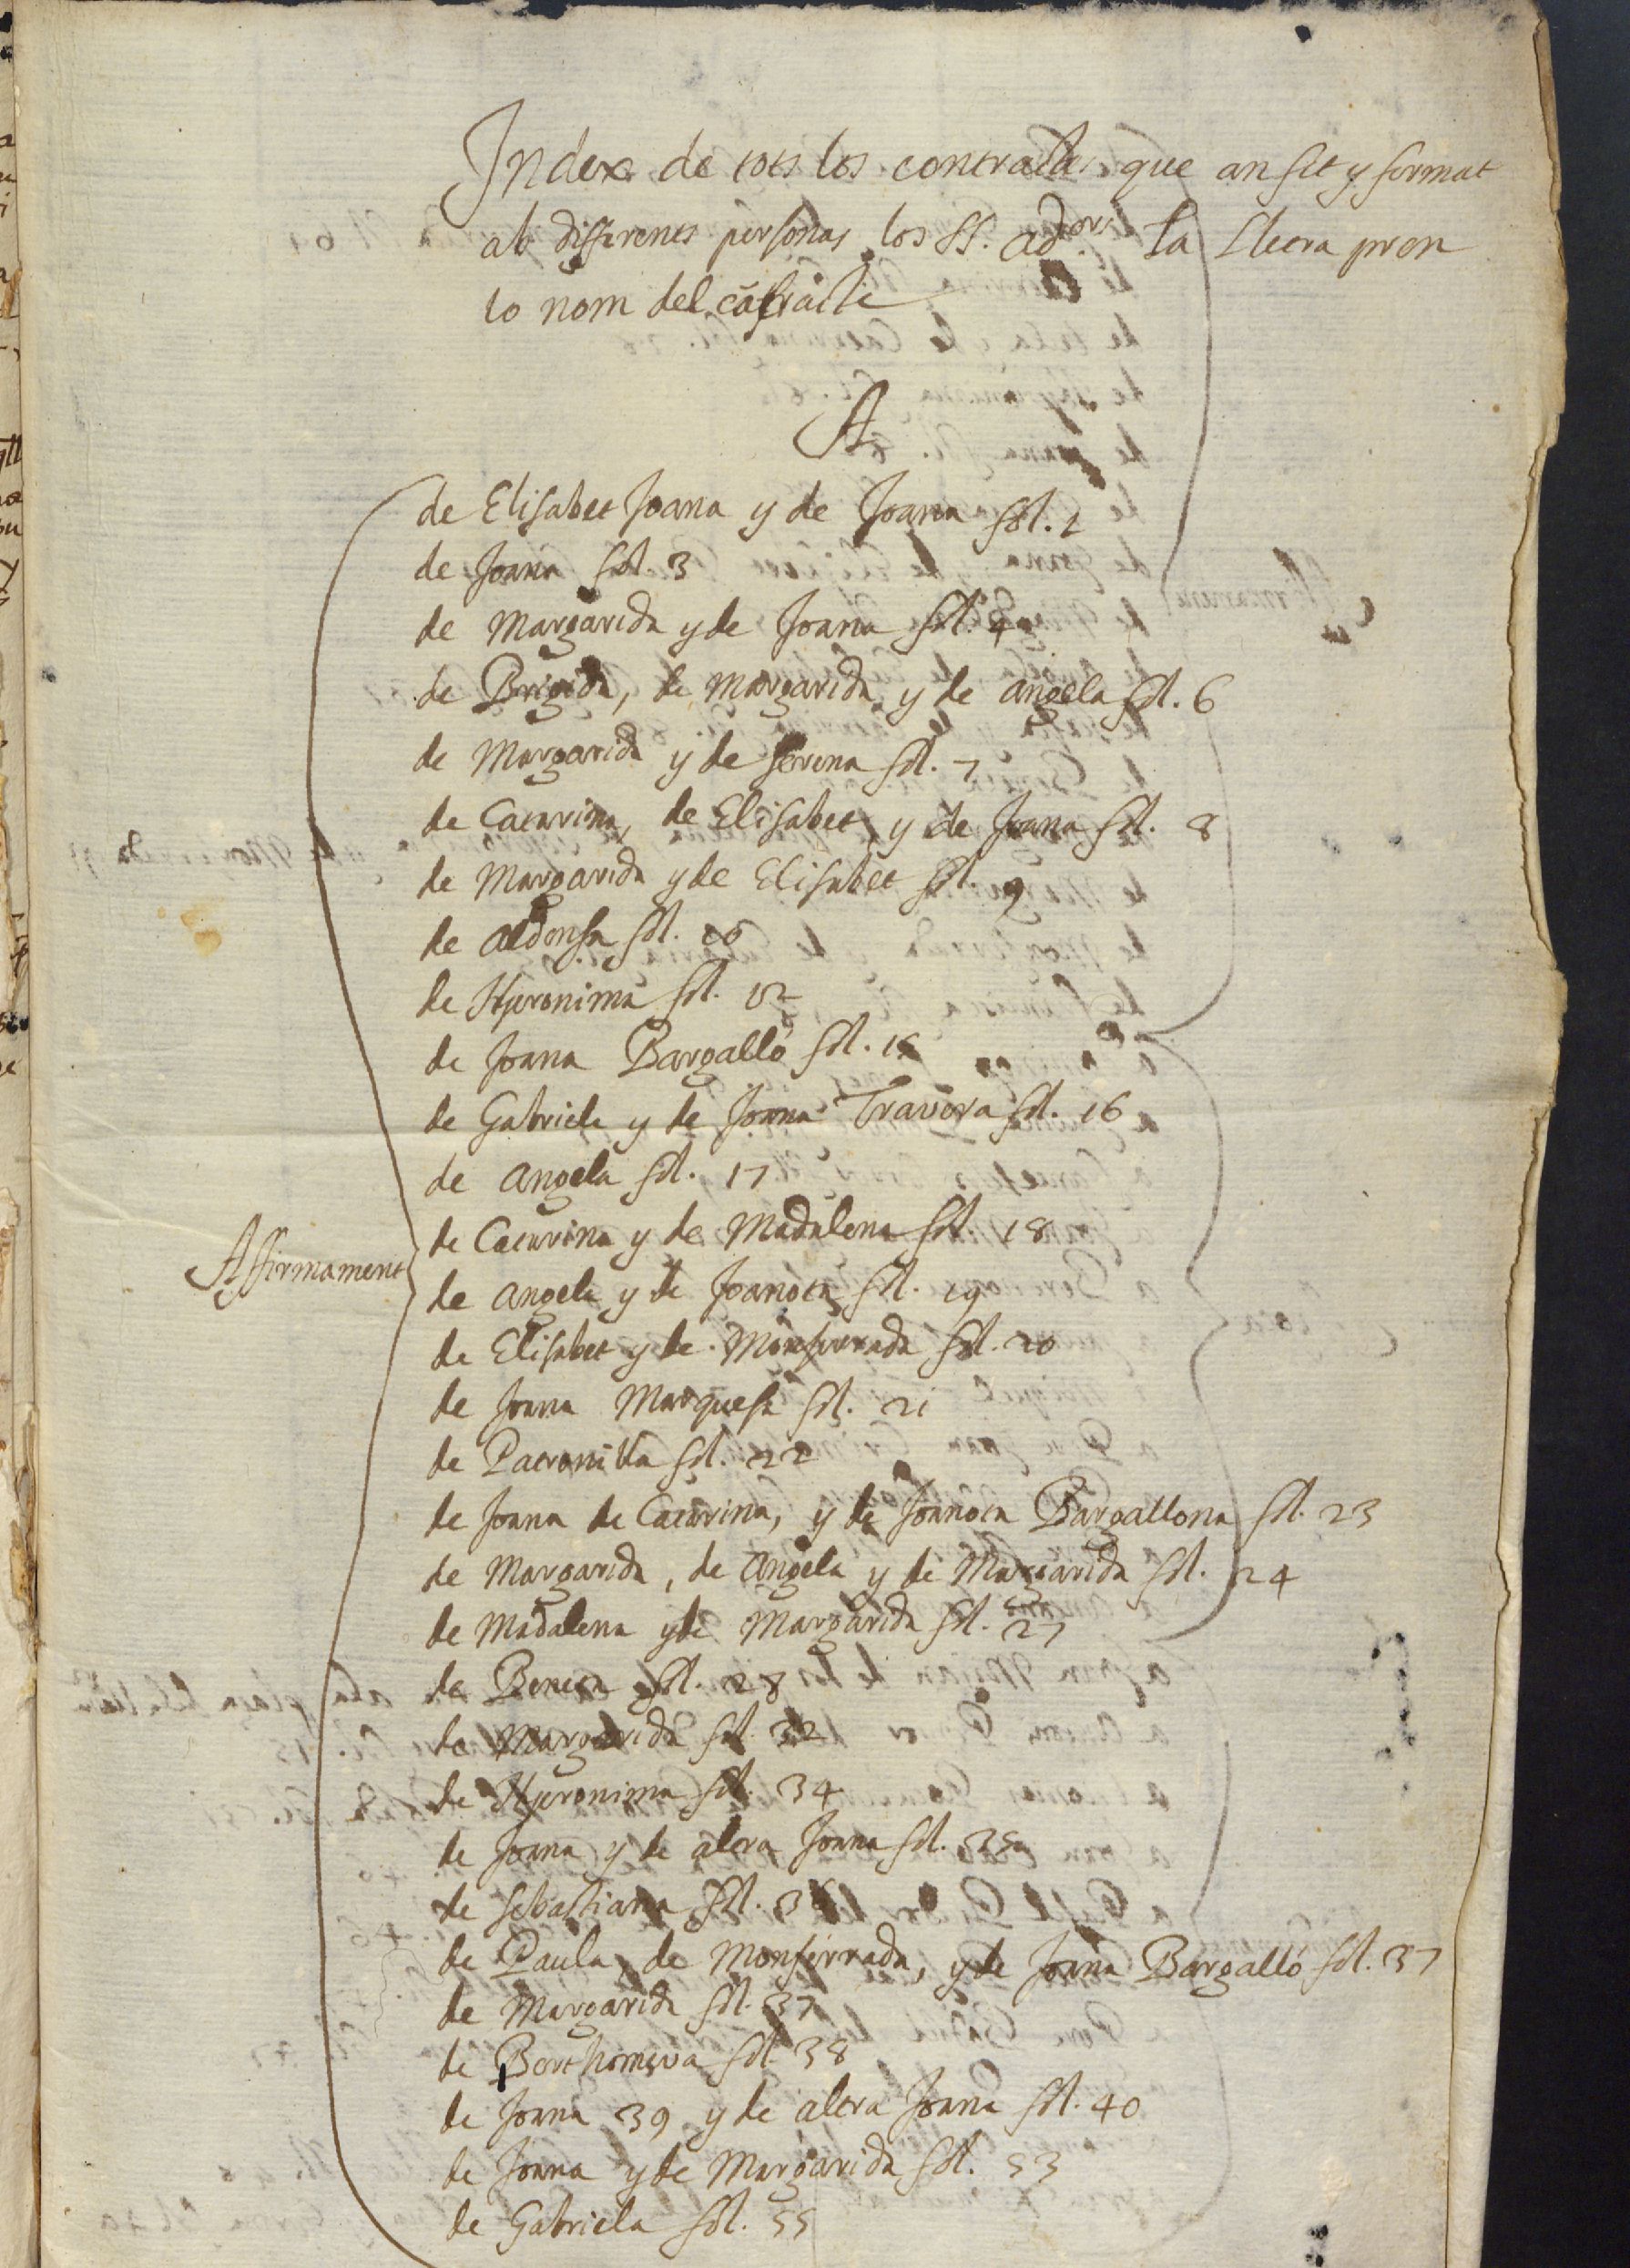 Index de tots los contractes que an fet y format
ab differents personas los SS. Ad.ors la lletra pren
lo nom del cõtracte
A
de Elisabet Joana y de Joana fol. 1
de Joana fol. 3
de Margarida y de Joana fol. 4
de Brigida, de Margarida y de Angela fol. 6
de Margarida y de Serena fol. 7
de Catarina, de Elisabet, y de Joana fol. 8
de Margarida y de Elisabet fol. 9
de Aldonsa fol. 10
de Hyeronima fol. 12
de Joana Bargalló fol.
de Gabriela y de Joana Travera fol. 16
de Angela fol. 17
de Catarina y de Madalena fol. 18
Affirmament
de Angela y de Joanota fol. 19
de Elisabet y de Monserrada fol. 20
de Joana Marquesa fol. 21
de Patronilla fol. 22
de Joana de Catarina, y de Joanota Bargallona fol. 23
de Margarida, de Angela y de Margarida fol. 24
de Madalena y de Margarida fol. 27
de Beneta fol. 28
de Margarida fol. 32
de Hyeronima fol. 34
de Joana y de altra Joana fol. 35
de Sebastiana fol. 36
de Paula, de Monserrada, y de Joana Bargalló fol. 37
de Margarida fol. 37
de Barthomeva fol. 38
de Joana 39 y de altra Joana fol. 40
de Joana y de Margarida fol. 53
de Gabriela fol. 55